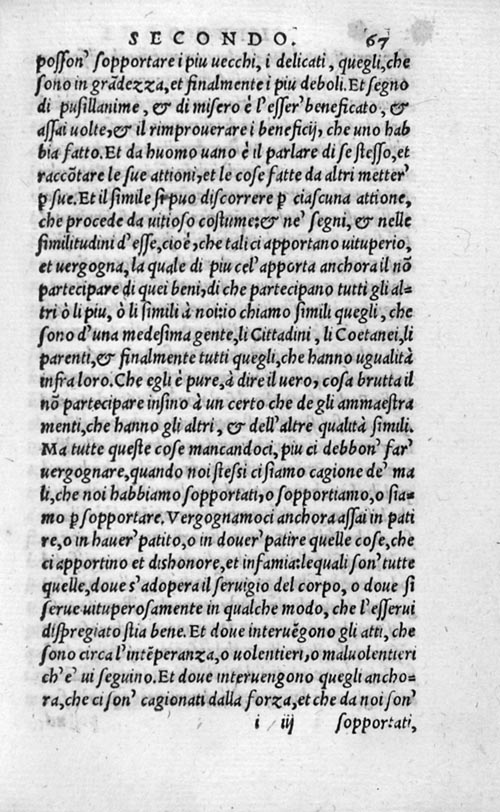 SECONDO. 67
posson' sopportare i piu uecchi, i delicati, quegli, che
sono in grādezza, et finalmente i piu deboli. Et segno
di pusillanime, & di misero è l'esser' beneficato, &
assai uolte, & il rimprouerare i beneficij, che uno hab
bia fatto. Et da huomo uano è il parlare di se stesso, et
raccōtare le sue attioni, et le cose fatte da altri metter'
p sue. Et il simile si puo discorrere p ciascuna attione,
che procede da uitioso costume: & ne' segni, & nelle
similitudini d'esse, cioè, che tali ci apportano uituperio,
et uergogna, la quale di piu cel'apporta anchora il nō
partecipare di quei beni, di che partecipano tutti gli al-
tri ò li piu, ò li simili à noi: io chiamo simili quegli, che
sono d'una medesima gente, li Cittadini, li Coetanei, li
parenti, & finalmente tutti quegli, che hanno ugualità
infra loro. Che egli è pure, à dire il uero, cosa brutta il
nō partecipare insino à un certo che de gli ammaestra
menti, che hanno gli altri, & dell'altre qualità simili.
Ma tutte queste cose mancandoci, piu ci debbon' far'
uergognare, quando noi stessi ci siamo cagione de' ma
li, che noi habbiamo sopportati, o sopportiamo, o sia-
mo p sopportare. Vergognamoci anchora assai in pati
re, o in hauer' patito, o in douer' patire quelle cose, che
ci apportino et dishonore, et infamia: lequali son' tutte
quelle, doue s'adopera il seruigio del corpo, o doue si
serue uituperosamente in qualche modo, che l'esserui
dispregiato stia bene. Et doue interuēgono gli atti, che
sono circa l'intēperanza, o uolentieri, o maluolentieri
ch'e' ui seguino. Et doue interuengono quegli ancho-
ra, che ci son' cagionati dalla forza, et che da noi son'
i iij sopportati,